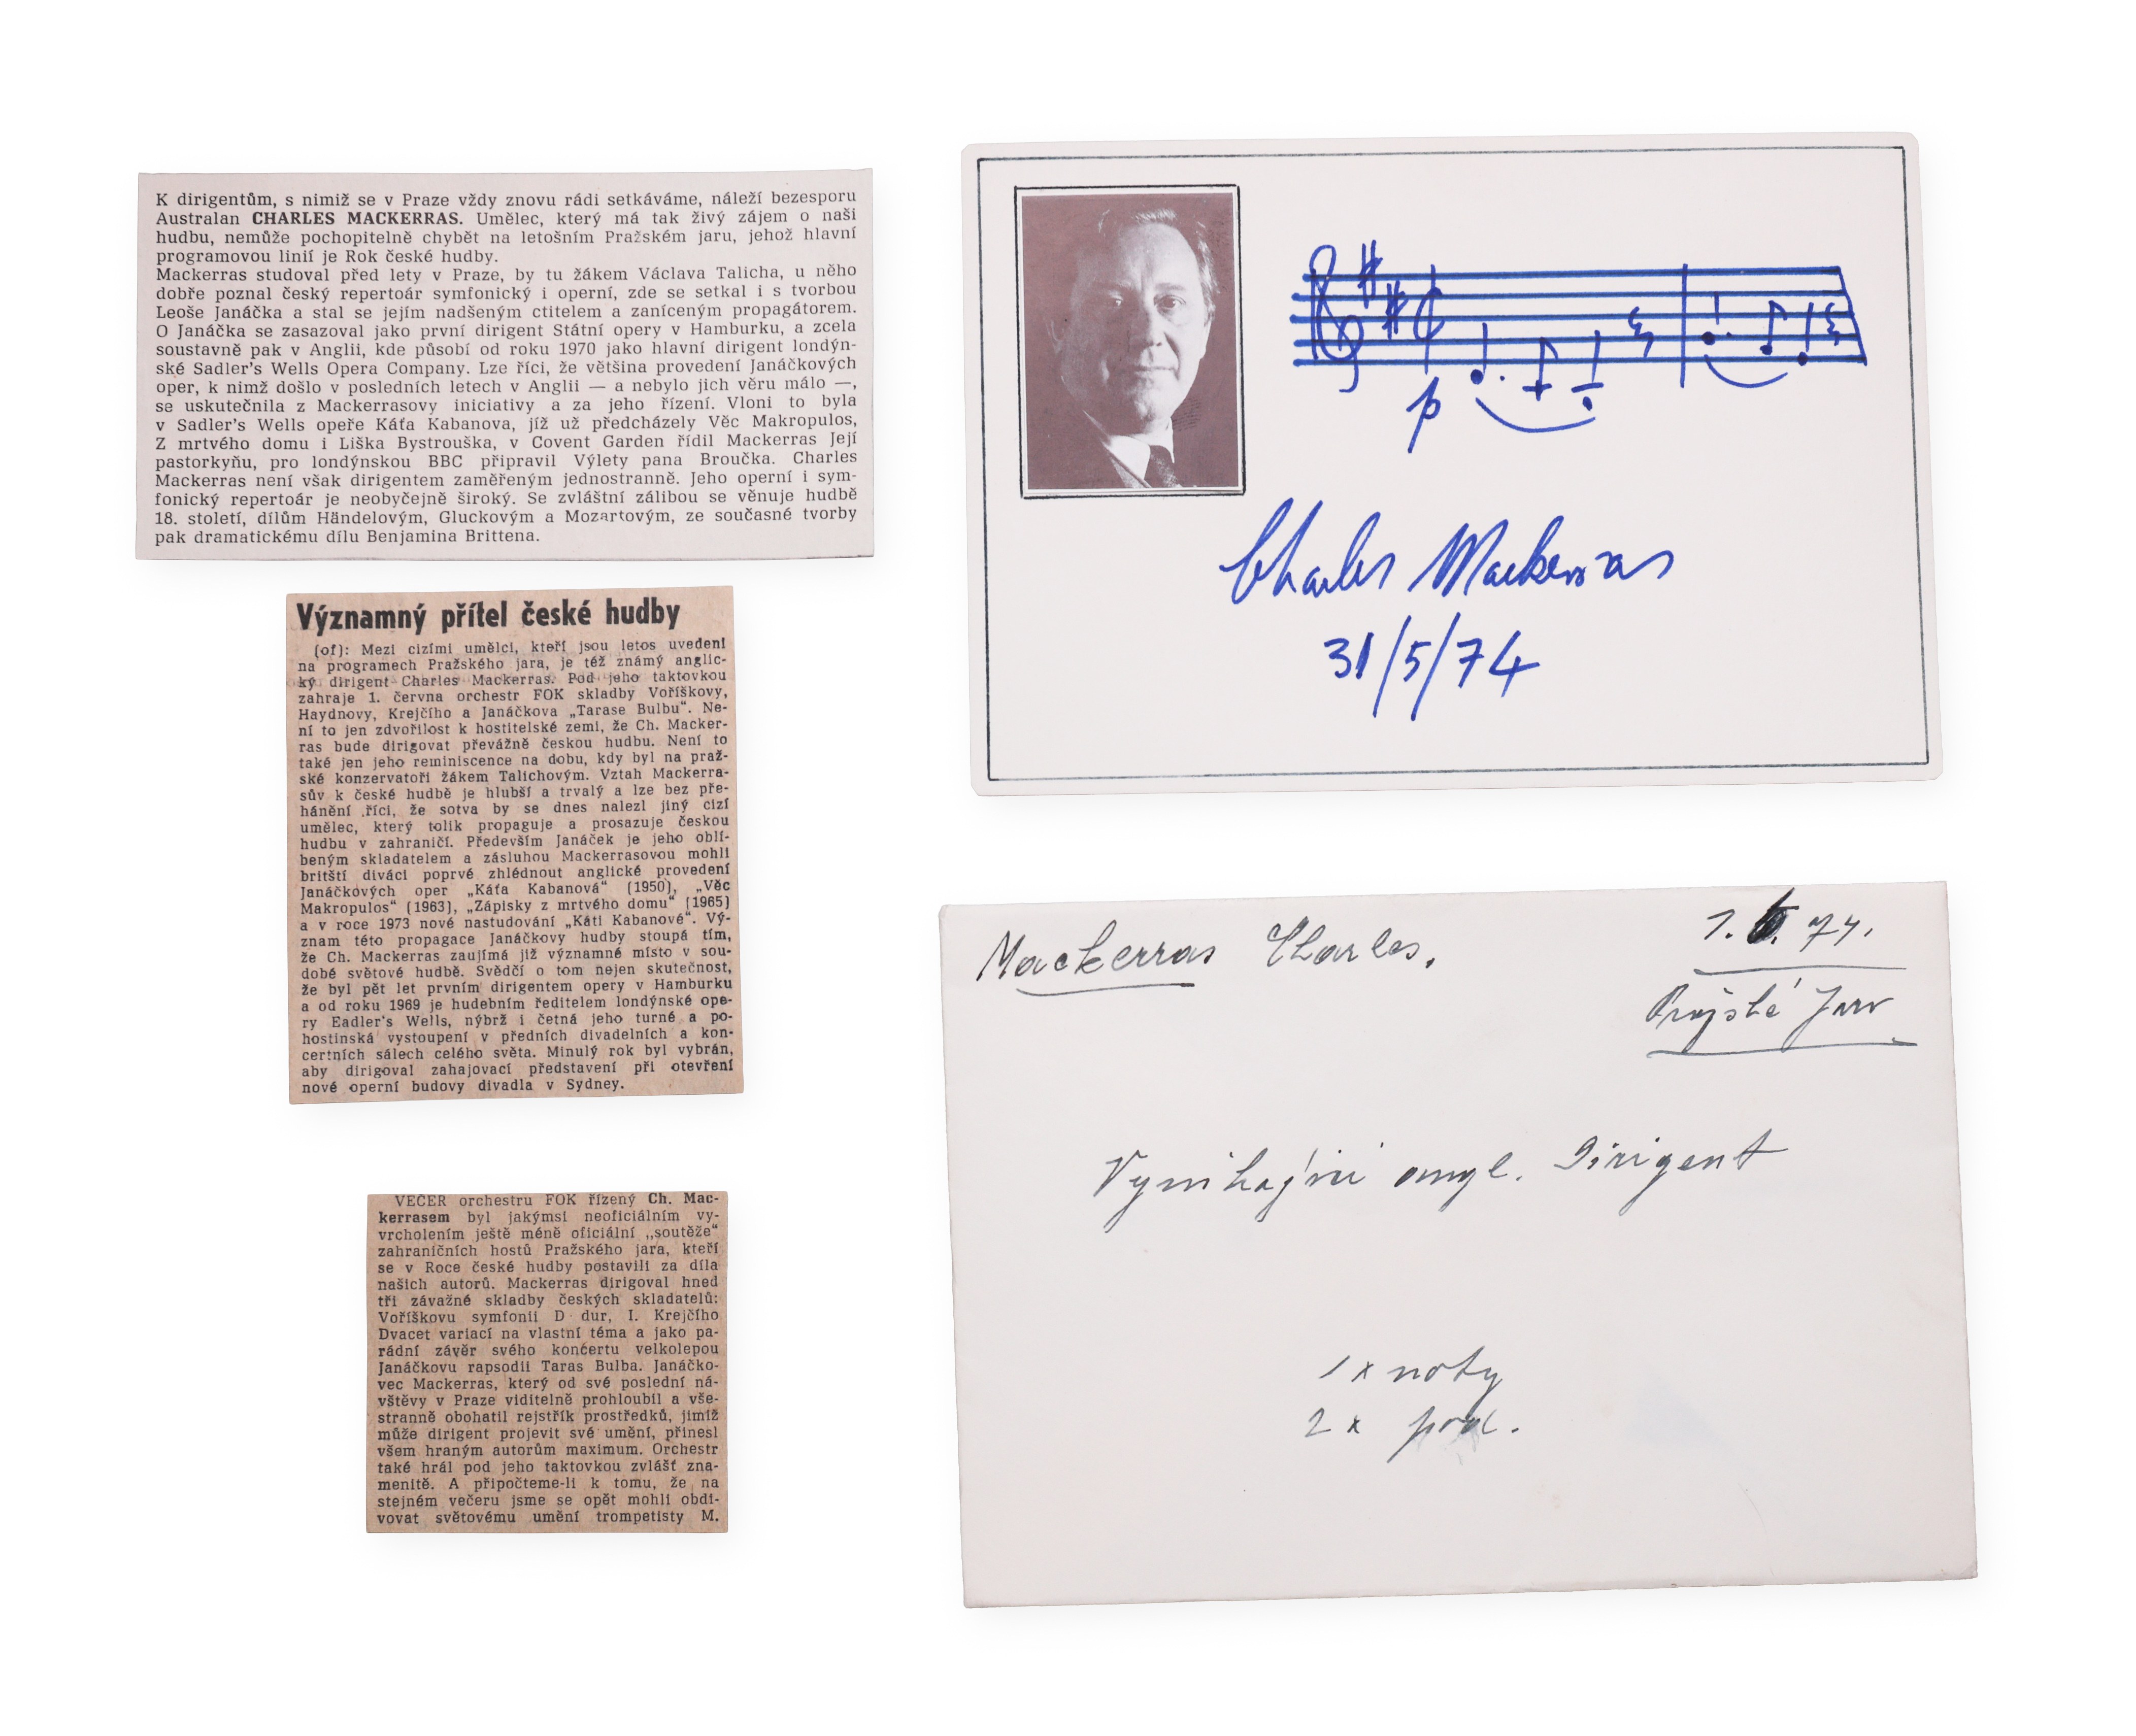 K dirigentům, s nimiž se v Praze vždy znovu rádi setkáváme, náleží bezesporu
Australan CHARLES MACKERRAS. Umělec, který má tak živý zájem o naši
hudbu, nemůže pochopitelně chybět na letošním Pražském jaru, jehož hlavní
programovou linií je Rok české hudby.
Mackerras studoval před lety v Praze, by tu žákem Václava Talicha, u něho
dobře poznal český repertoár symfonický i operní, zde se setkal i s tvorbou
Leoše Janáčka a stal se jejím nadšeným ctitelem a zaníceným propagátorem.
O Janáčka se zasazoval jako první dirigent Státní opery v Hamburku, a zcela
soustavně pak v Anglii, kde působí od roku 1970 jako hlavní dirigent londýn-
ské Sadler's Wells Opera Company. Lze říci, že většina provedení Janáčkových
oper, k nimž došlo v posledních letech v Anglii — a nebylo jich věru málo —,
se uskutečnila z Mackerrasovy iniciativy a za jeho řízení. Vloni to byla
v Sadler's Wells opeře Káťa Kabanova, jíž už předcházely Věc Makropulos,
Z mrtvého domu i Liška Bystrouška, v Covent Garden řídil Mackerras Její
pastorkyňu, pro londýnskou BBC připravil Výlety pana Broučka. Charles
Mackerras není však dirigentem zaměřeným jednostranně. Jeho operní i sym-
fonický repertoár je neobyčejně široký. Se zvláštní zálibou se věnuje hudbě
18. století, dílům Händelovým, Gluckovým a Mozartovým, ze současné tvorby
pak dramatickému dílu Benjamina Brittena.
Významný přítel české hudby
(of): Mezi cizími umělci, kteří jsou letos uvedeni
na programech Pražského jara, je též známý anglic-
ký dirigent Charles Mackerras. Pod jeho taktovkou
zahraje 1. června orchestr FOK skladby Voříškovy,
Haydnovy, Krejčího a Janáčkova „Tarase Bulbu“. Ne-
ní to jen zdvořilost k hostitelské zemi, že Ch. Macker-
ras bude dirigovat převážně českou hudbu. Není to
také jen jeho reminiscence na dobu, kdy byl na praž-
ské konzervatoři žákem Talichovým. Vztah Mackerra-
sův k české hudbě je hlubší a trvalý a lze bez pře-
hánění říci, že sotva by se dnes nalezl jiný cizí
umělec, který tolik propaguje a prosazuje českou
hudbu v zahraničí. Především Janáček je jeho oblí-
beným skladatelem a zásluhou Mackerrasovou mohli
britští diváci poprvé zhlédnout anglické provedení
Janáčkových oper „Káťa Kabanová“ (1950), „Věc
Makropulos“ (1963), „Zápisky z mrtvého domu“ (1965)
a v roce 1973 nové nastudování „Káti Kabanové“. Vý-
znam této propagace Janáčkovy hudby stoupá tím,
že Ch. Mackerras zaujímá již významné místo v sou-
dobé světové hudbě. Svědčí o tom nejen skutečnost,
že byl pět let prvním dirigentem opery v Hamburku
a od roku 1969 je hudebním ředitelem londýnské ope-
ry Eadler's Wells, nýbrž i četná jeho turné a po-
hostinská vystoupení v předních divadelních a kon-
certních sálech celého světa. Minulý rok byl vybrán,
aby dirigoval zahajovací představení při otevření
nové operní budovy divadla v Sydney.
VEČER orchestru FOK řízený Ch. Mac-
kerrasem byl jakýmsi neoficiálním vy-
vrcholením ještě méně oficiální „soutěže“
zahraničních hostů Pražského jara, kteří
se v Roce české hudby postavili za díla
našich autorů. Mackerras dirigoval hned
tři závažné skladby českých skladatelů:
Voříškovu symfonii D dur, I. Krejčího
Dvacet variací na vlastní téma a jako pa-
rádní závěr svého koncertu velkolepou
Janáčkovu rapsodii Taras Bulba. Janáčko-
vec Mackerras, který od své poslední ná-
vštěvy v Praze viditelně prohloubil a vše-
stranně obohatil rejstřík prostředků, jimiž
může dirigent projevit své umění, přinesl
všem hraným autorům maximum. Orchestr
také hrál pod jeho taktovkou zvlášť zna-
menitě. A připočteme-li k tomu, že na
stejném večeru jsme se opět mohli obdi-
vovat světovému umění trompetisty M.
p
Charles Mackerras
31/5/74
Mackerras Charles.
1. 6. 74.
Pražské Jaro
Vynikající angl. Dirigent
1 x noty
2 x pod.